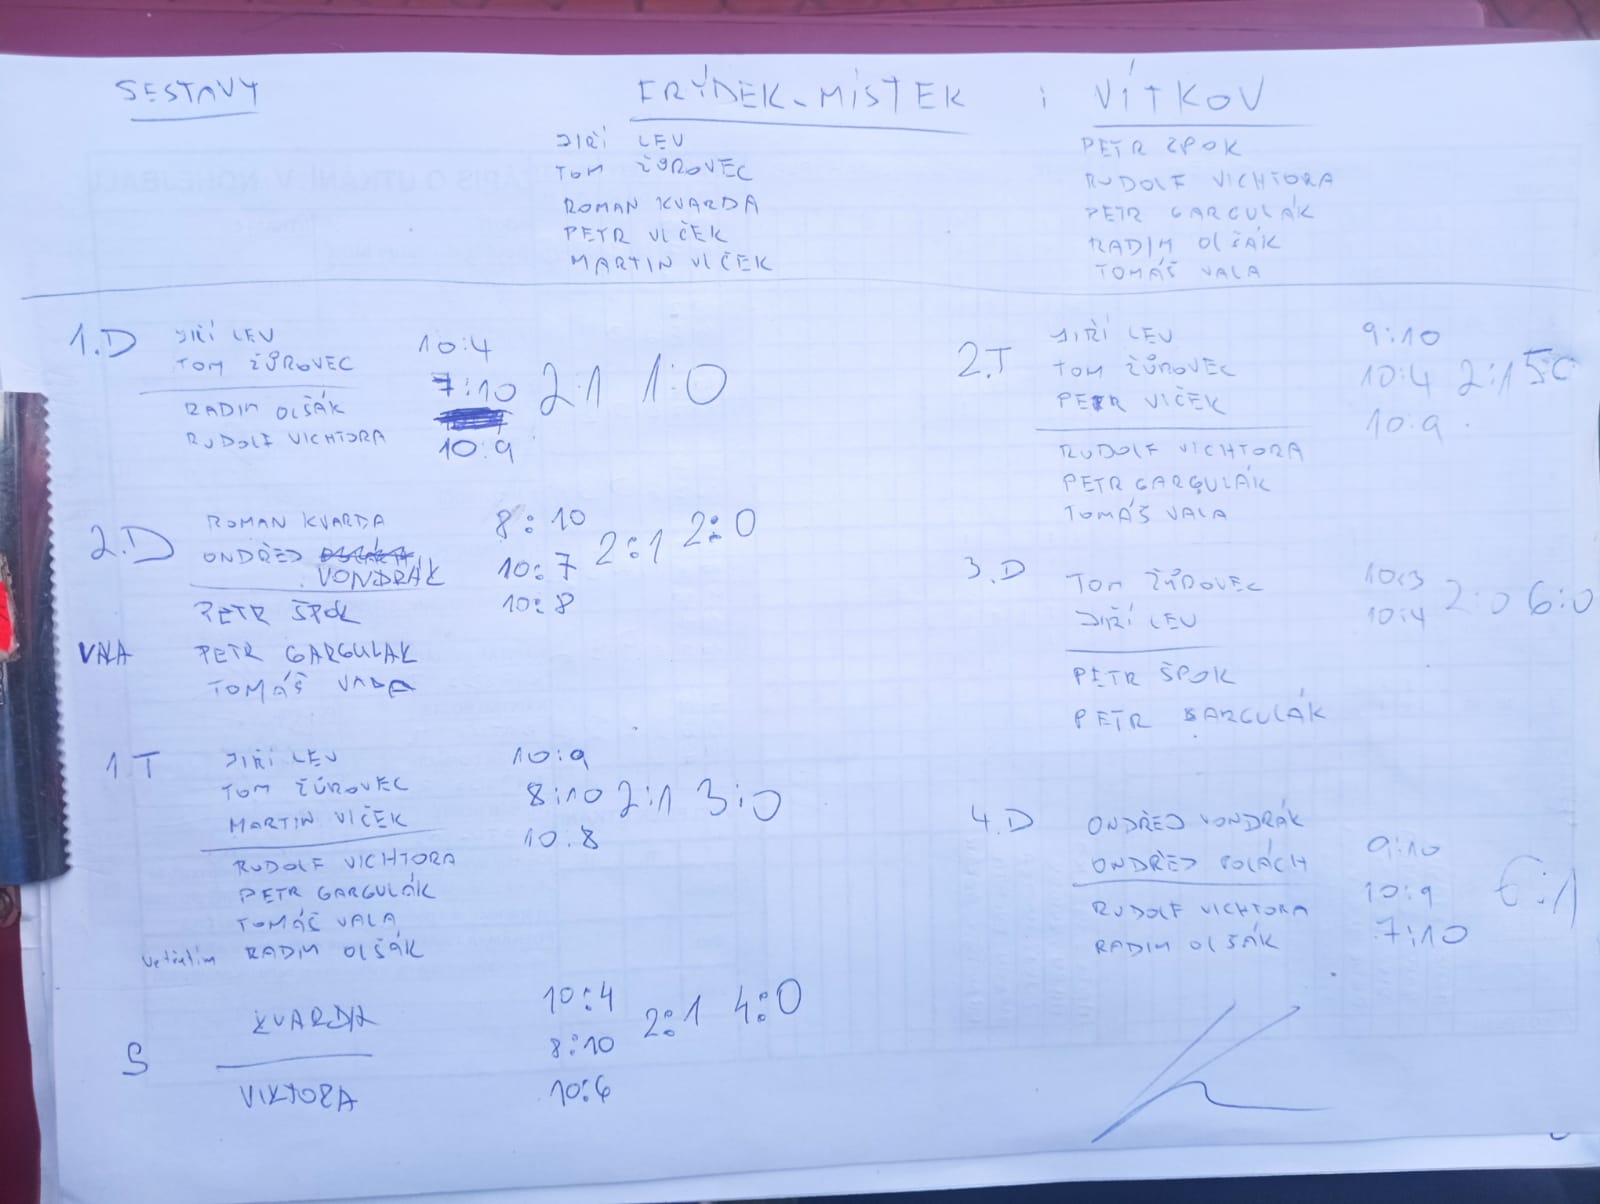 SESTAVY
FRÝDEK-MÍSTEK : VÍTKOV
JIŘÍ LEV
TOM ŽŮROVEC
ROMAN KVARDA
PETR VLČEK
MARTIN VLČEK
PETR ŠPOK
RUDOLF VICHTORA
PETR GARGULÁK
RADIM OLŠÁK
TOMÁŠ VALA
1.D
JIŘÍ LEV
TOM ŽŮROVEC
RADIM OLŠÁK
RUDOLF VICHTORA
10:4
7:10 2:1 1:0
10:9
2.D
ROMAN KVARDA
ONDŘEJ
VONDRÁK
PETR ŠPOK
VALA PETR GARGULAK
TOMÁŠ VALA
8:10
10:7 2:1 2:0
10:8
1T
JIŘÍ LEV
TOM ŽŮROVEC
MARTIN VLČEK
RUDOLF VICHTORA
PETR GARGULÁK
TOMÁŠ VALA
RADIM OLŠÁK
10:9
8:10 2:1 3:0
10.8
S
KVARDA
VIKTORA
10:4
8:10 2:1 4:0
10:6
2.T
JIŘÍ LEV
TOM ŽŮROVEC
PETR VLČEK
RUDOLF VICHTORA
PETR GARGULÁK
TOMÁŠ VALA
9:10
10:4 2:1 5:0
10:9
3.D
TOM ŽŮROVEC
JIŘÍ LEV
PETR ŠPOK
PETR GARGULÁK
10:3
10:4 2:0 6:0
4.D
ONDŘEJ VONDRÁK
ONDŘEJ POLÁCH
RUDOLF VICHTORA
RADIM OLŠÁK
9:10
10:9 6:1
7:10